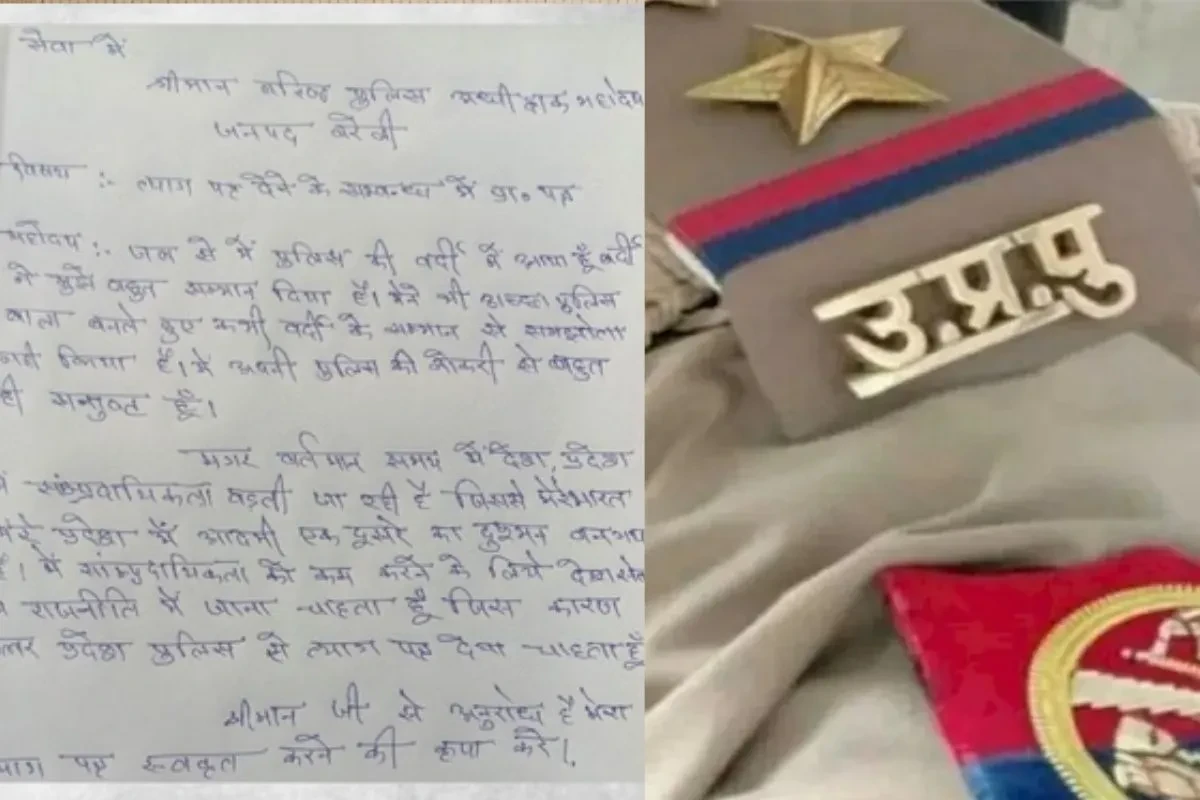 सेवा में
श्रीमान वरिष्ठ पुलिस अधीक्षक महोदय
जनपद बरेली
विषय :- त्याग पत्र देने के सम्बन्ध में प्रा० पत्र
महोदय :- जब से मैं पुलिस की वर्दी में आया हूँ वर्दी
ने मुझे बहुत सम्मान दिया है। मैने भी अच्छा पुलिस
वाला बनते हुए कभी वर्दी के सम्मान से समझोता
नही किया है। मैं अपनी पुलिस की नौकरी से बहुत
ही सन्तुष्ट हूँ।
मगर वर्तमान समय में देश, प्रदेश
में साम्प्रदायिकता बढ़ती जा रही है जिससे मेरे भारत
मेरे प्रदेश में आदमी एक दूसरे का दुश्मन बन गया
है। मैं सांम्प्रदायिकता को कम करने के लिये देश सेवा
राजनीति में जाना चाहता हूँ जिस कारण
उत्तर प्रदेश पुलिस से त्याग पत्र देना चाहता हूँ
श्रीमान जी से अनुरोध है मेरा
त्याग पत्र स्वकृत करने की कृपा करें।
उ.प्र.पु